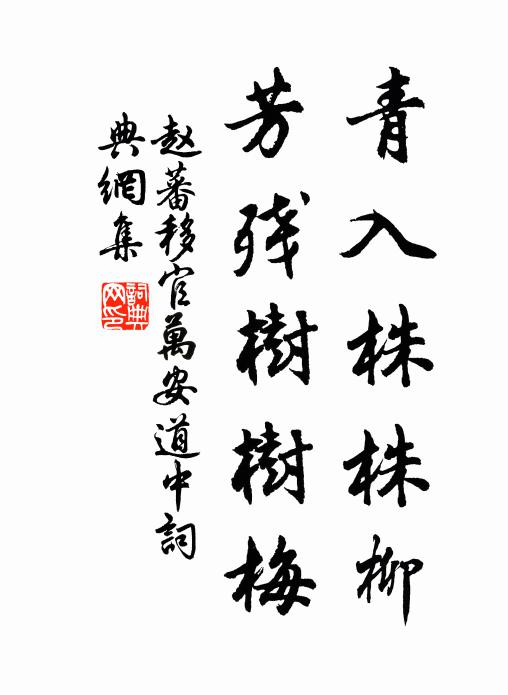 青入株株柳
芳残樹樹梅
赵蕃移官萬安道中詞
典網集
詞典网印